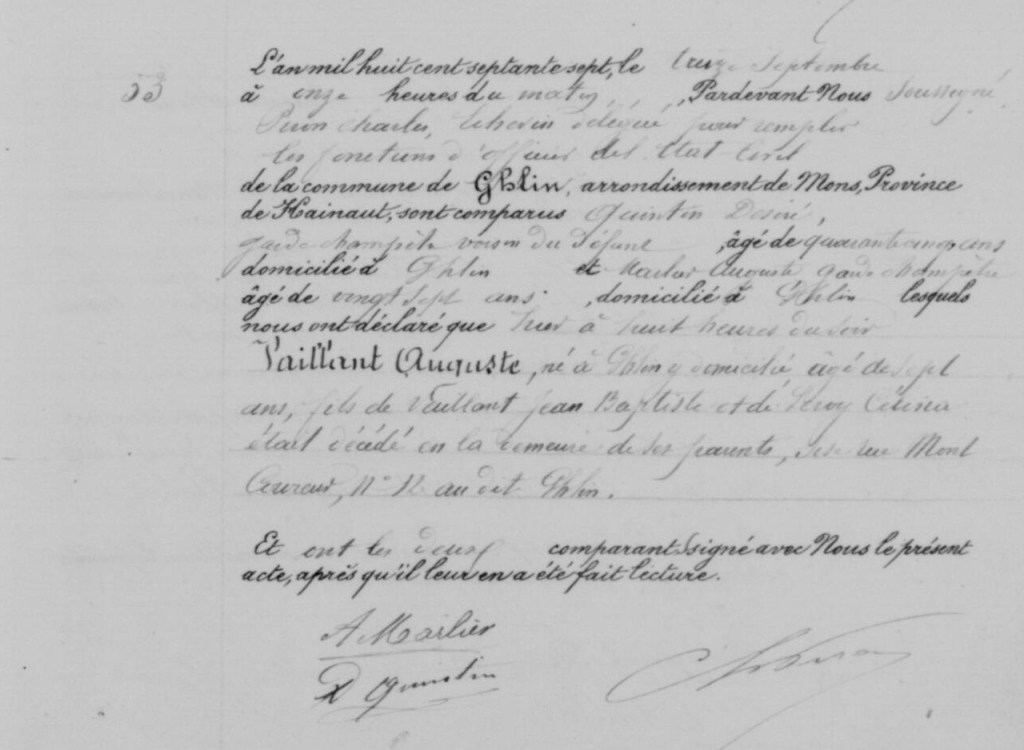 53
L'an mil huit cent septante sept, le Septembre
à onze heures du matin, Pardevant Nous soussigné
Charles, Echevin délégué pour remplir
les fonctions d'officier de l'Etat Civil
de la commune de Ghlin, arrondissement de Mons, Province
de Hainaut, sont comparus Quintin Desiré,
garde champêtre voisin du défunt, âgé de quarante cinq ans
domicilié à Ghlin et Marlier Auguste garde champêtre
âgé de vingt sept ans, domicilié à Ghlin lesquels
nous ont déclaré que hier à huit heures du soir
Vaillant Auguste, né à Ghlin y domicilié, âgé de sept
ans, fils de Vaillant Jean Baptiste et de Leroy
était décédé en la demeure de ses parents, sise rue Mont
N° 12 au dit Ghlin.
Et ont les deux comparants signé avec Nous le présent
acte, après qu'il leur en a été fait lecture.
A Marlier
D Quintin